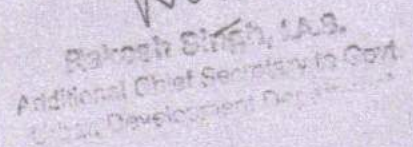 Rakesh Singh, I.A.S.
Additional Chief Secretary to Govt
Urban Development Department